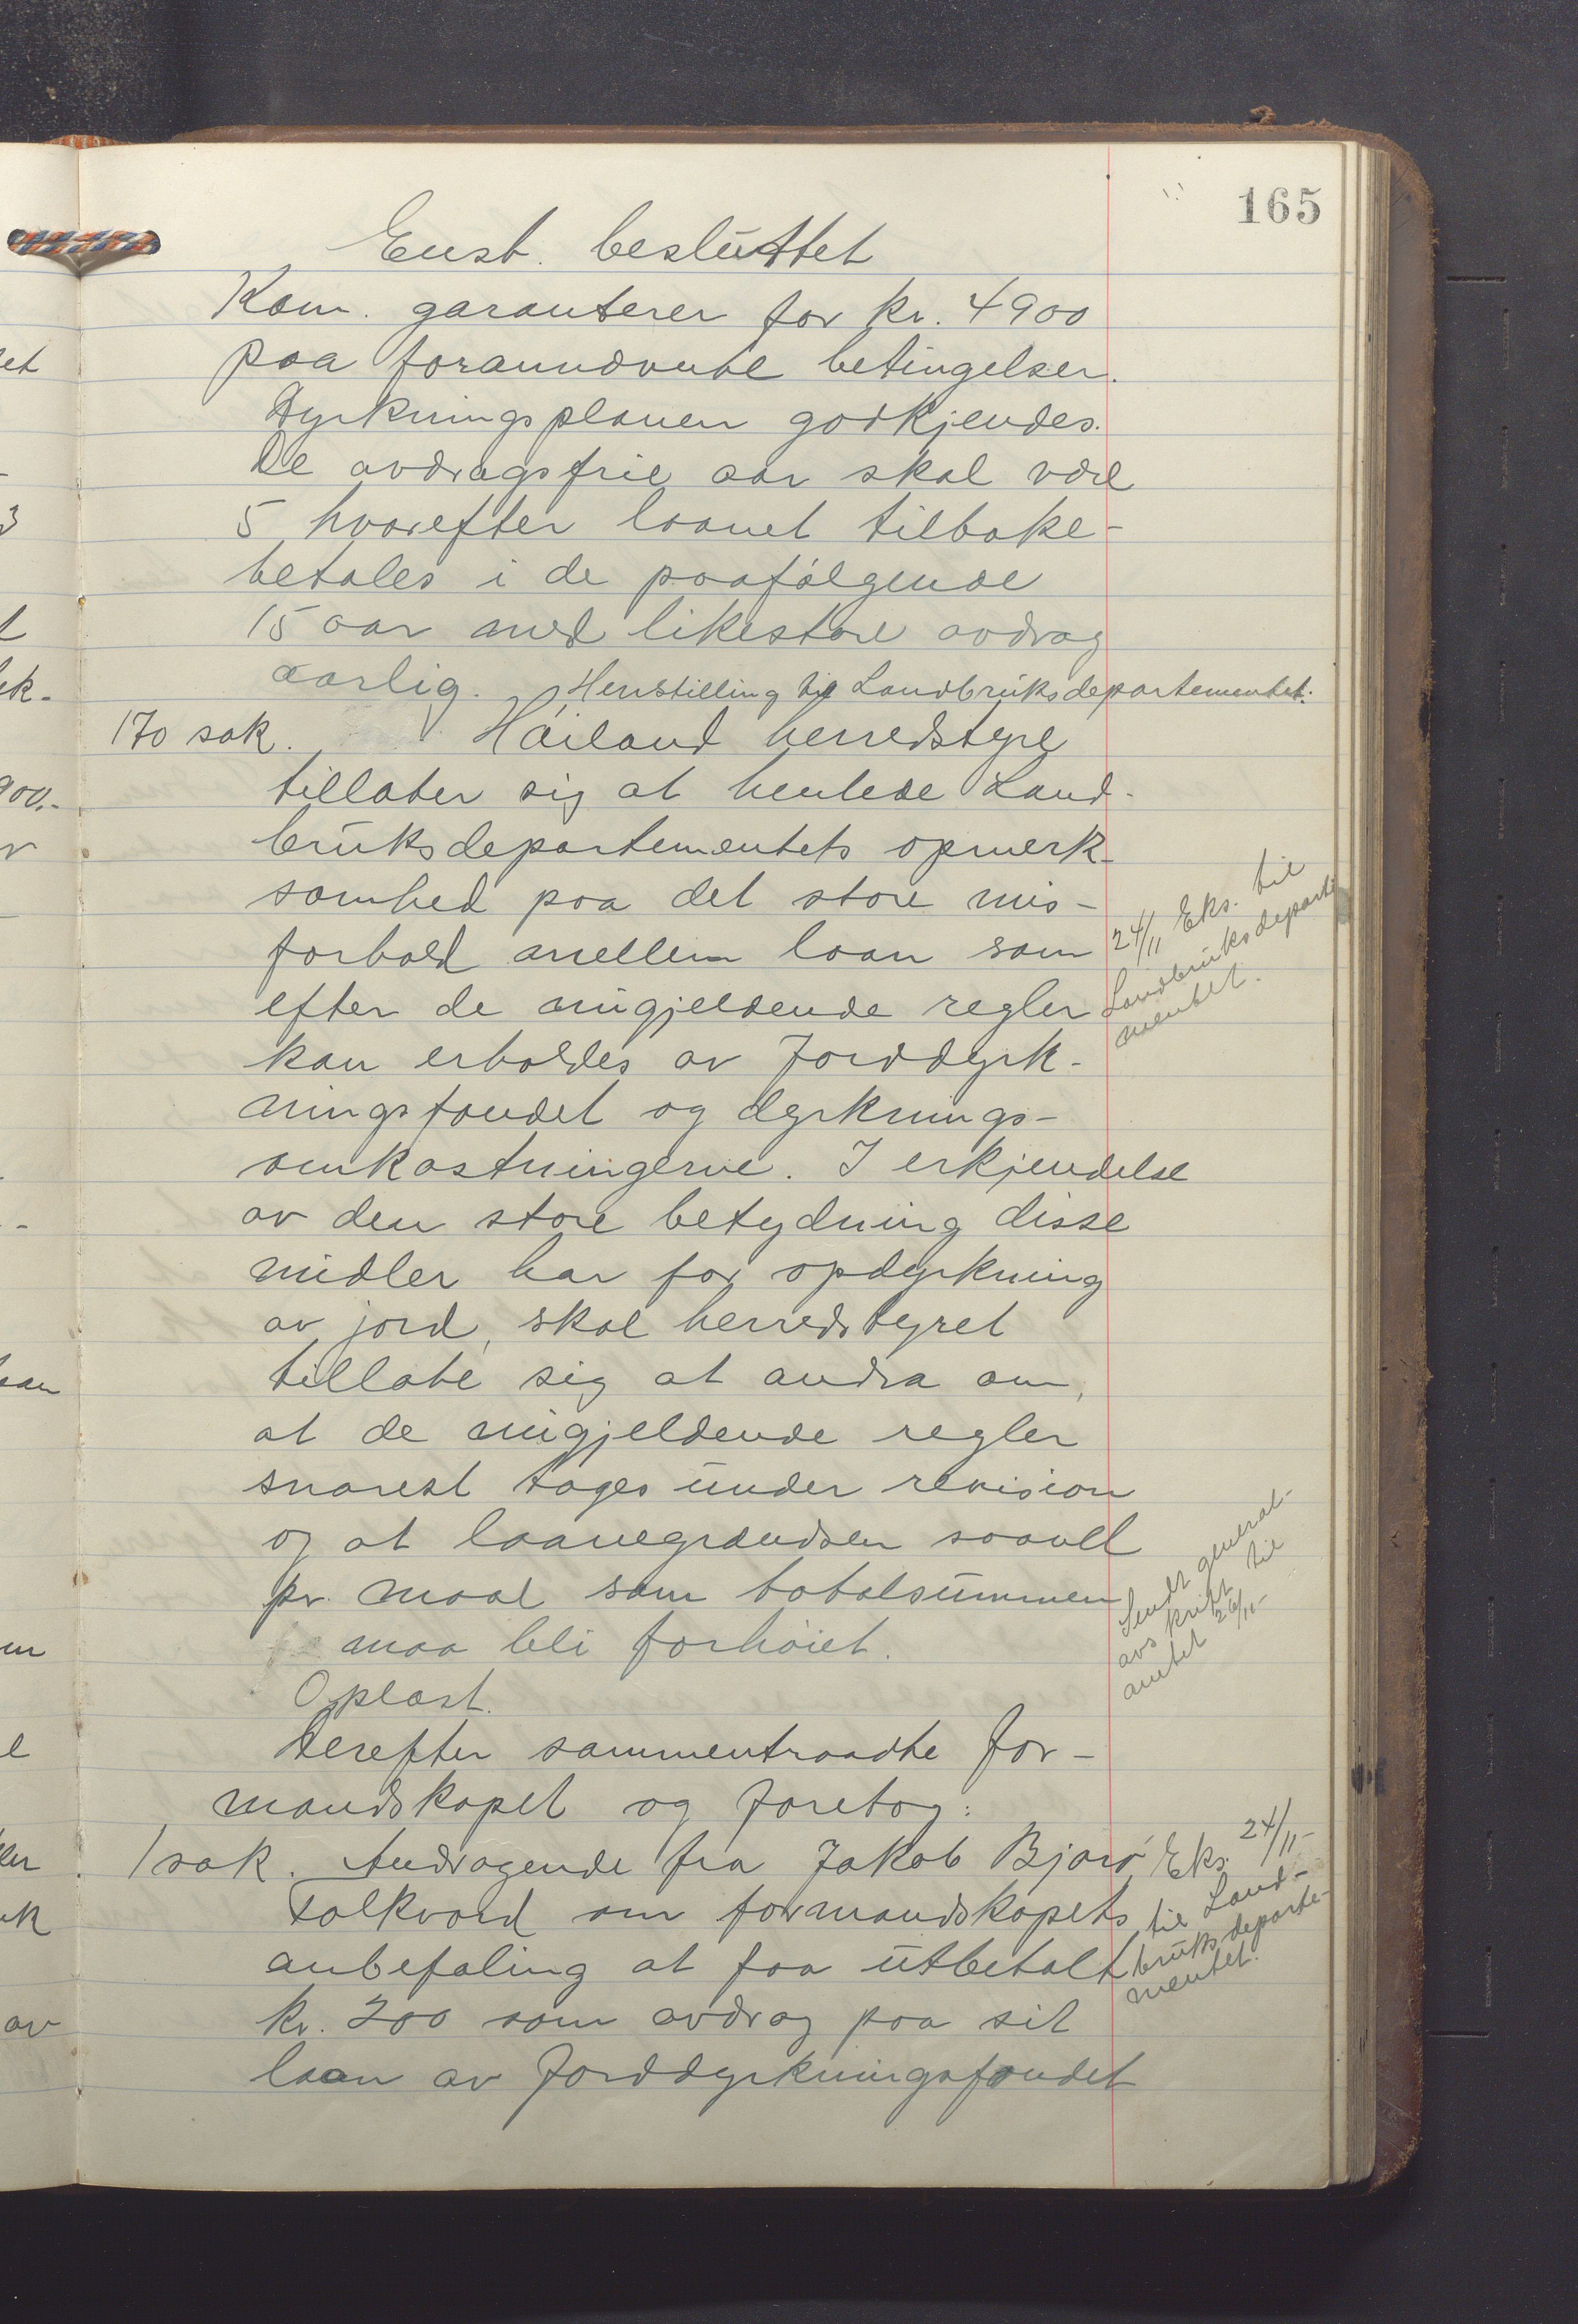 165
Enst. besluttet
Kom. garanterer for kr. 4900
paa forannævnte betingelser.
Dyrkningsplanen godkjendes.
De avdragsfrie aar skal være
5 hvorefter laanet tilbake-
betales i de paafølgende
15 aar med likestore avdrag
aarlig. Henstilling til Landbruksdepartementet.
170 sak. Høiland herredstyre
tillater sig at henlede Land-
bruksdepartementets opmerk-
somhed paa det store mis-
forhold mellem laan som
efter de nugjeldende regler
kan erholdes av Jorddyrk-
ningsfondet og dyrknings-
omkostningerne. I erkjendelse
av den store betydning disse
midler har for opdyrkning
av jord, skal herredstyret
tillate sig at andra om,
at de nugjeldende regler
snarest tages under revision
og at laanegrændsen saavel
pr. maal som totalsummen
maa bli forhøiet.
Oplæst.
Derefter sammentraadte for-
mandskapet og foretog:
1 sak. Andragende fra Jakob Bjorø
Folkvord om formandskapets
anbefaling at faa utbetalt
kr. 200 som avdrag paa sit
laan av Jorddyrkningsfondet
24/11 Eks. til
Landbruksdeparte
mentet.
Sendt general-
avskrift til
amtet 26/11-
Eks. 24/11-
til Land-
bruksdeparte-
mentet.